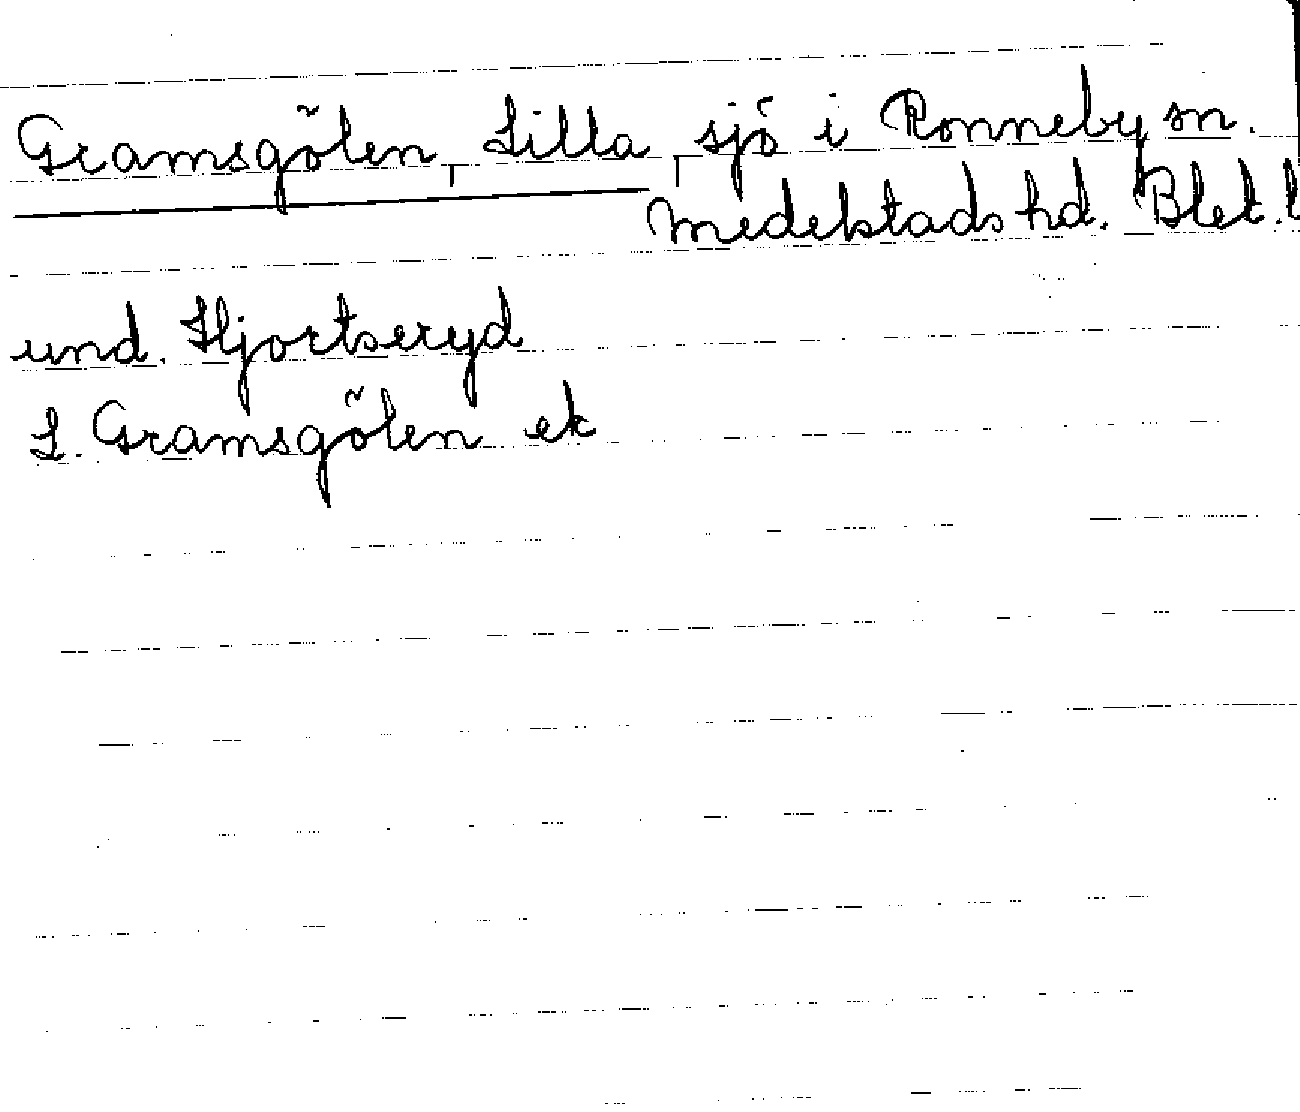 Gramsgölen, Lilla, sjö i Ronneby sn.
Medelstads hd. Blek. l
und. Hjortseryd
L. Gramsgölen ek